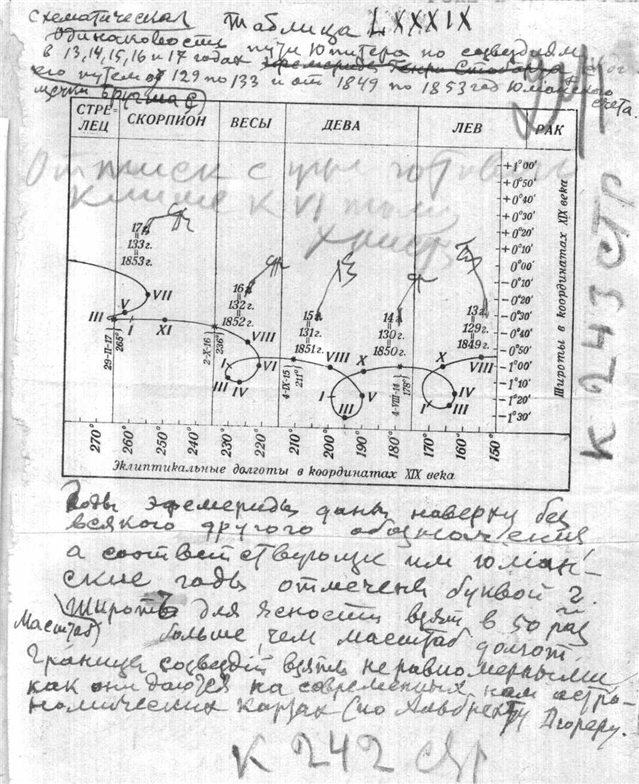 Схематическая Таблица LXXXIX
одинаковости пути Юпитера по созвездиям
в 13, 14, 15, 16 и 17 годах эфемериды Генри
его путем от 129 по 133 и от 1849 по 1853 год Юлианского
счета.
СТРЕ-
ЛЕЦ СКОРПИОН ВЕСЫ ДЕВА ЛЕВ РАК
Оттиск с уже готового
клише к VI тому
Христа
+1°00'
+0°50'
+0°40'
+0°30'
+0°20'
+0°10'
0°00'
0°10'
0°20'
0°30'
0°40'
0°50'
1°00'
1°10'
1°20'
1°30'
Широты в координатах XIX века
17г.
133г.
1853г.
16г.
132г.
1852г.
15г.
131г.
1851г.
14г.
130г.
1850г.
13г.
129г.
1849г.
VII
V
III I XI
VIII
I VI
III IV
VIII
X
I V
III
X
I IV
III
29-II-17
265°
2-X-16
236°
4-IX-15
211°
4-VIII-14
178°
270° 260° 250° 240° 230° 220° 210° 200° 190° 180° 170° 160° 150°
Эклиптикальные долготы в координатах XIX века
Годы эфемериды даны наверху без
всякого другого обозначения
а соответствующие им юлиан-
ские годы отмечены буквой г.
Широты для ясности взят в 50 раз
Масштаб) больше, чем масштаб долгот,
Границы созвездий взяты неравномерными
как они даются на современных нам астро-
номических картах (по Альбрехту Дюреру.
К 242 стр
К 243 стр